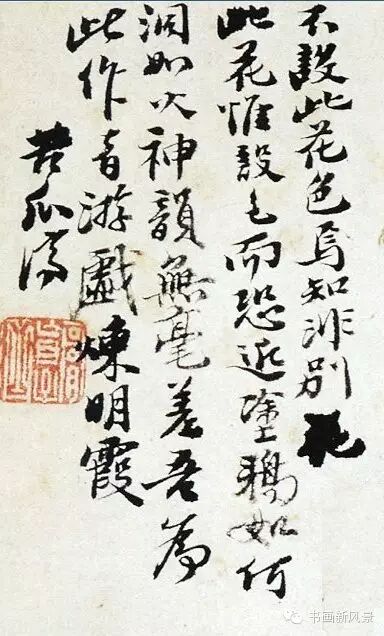 不設此花色焉知非別花
此花惟設色而恐近塗鴉如何
洞如火神韻無毫差吾為
此作游戲煉明霞
苦瓜濟
书画新风景